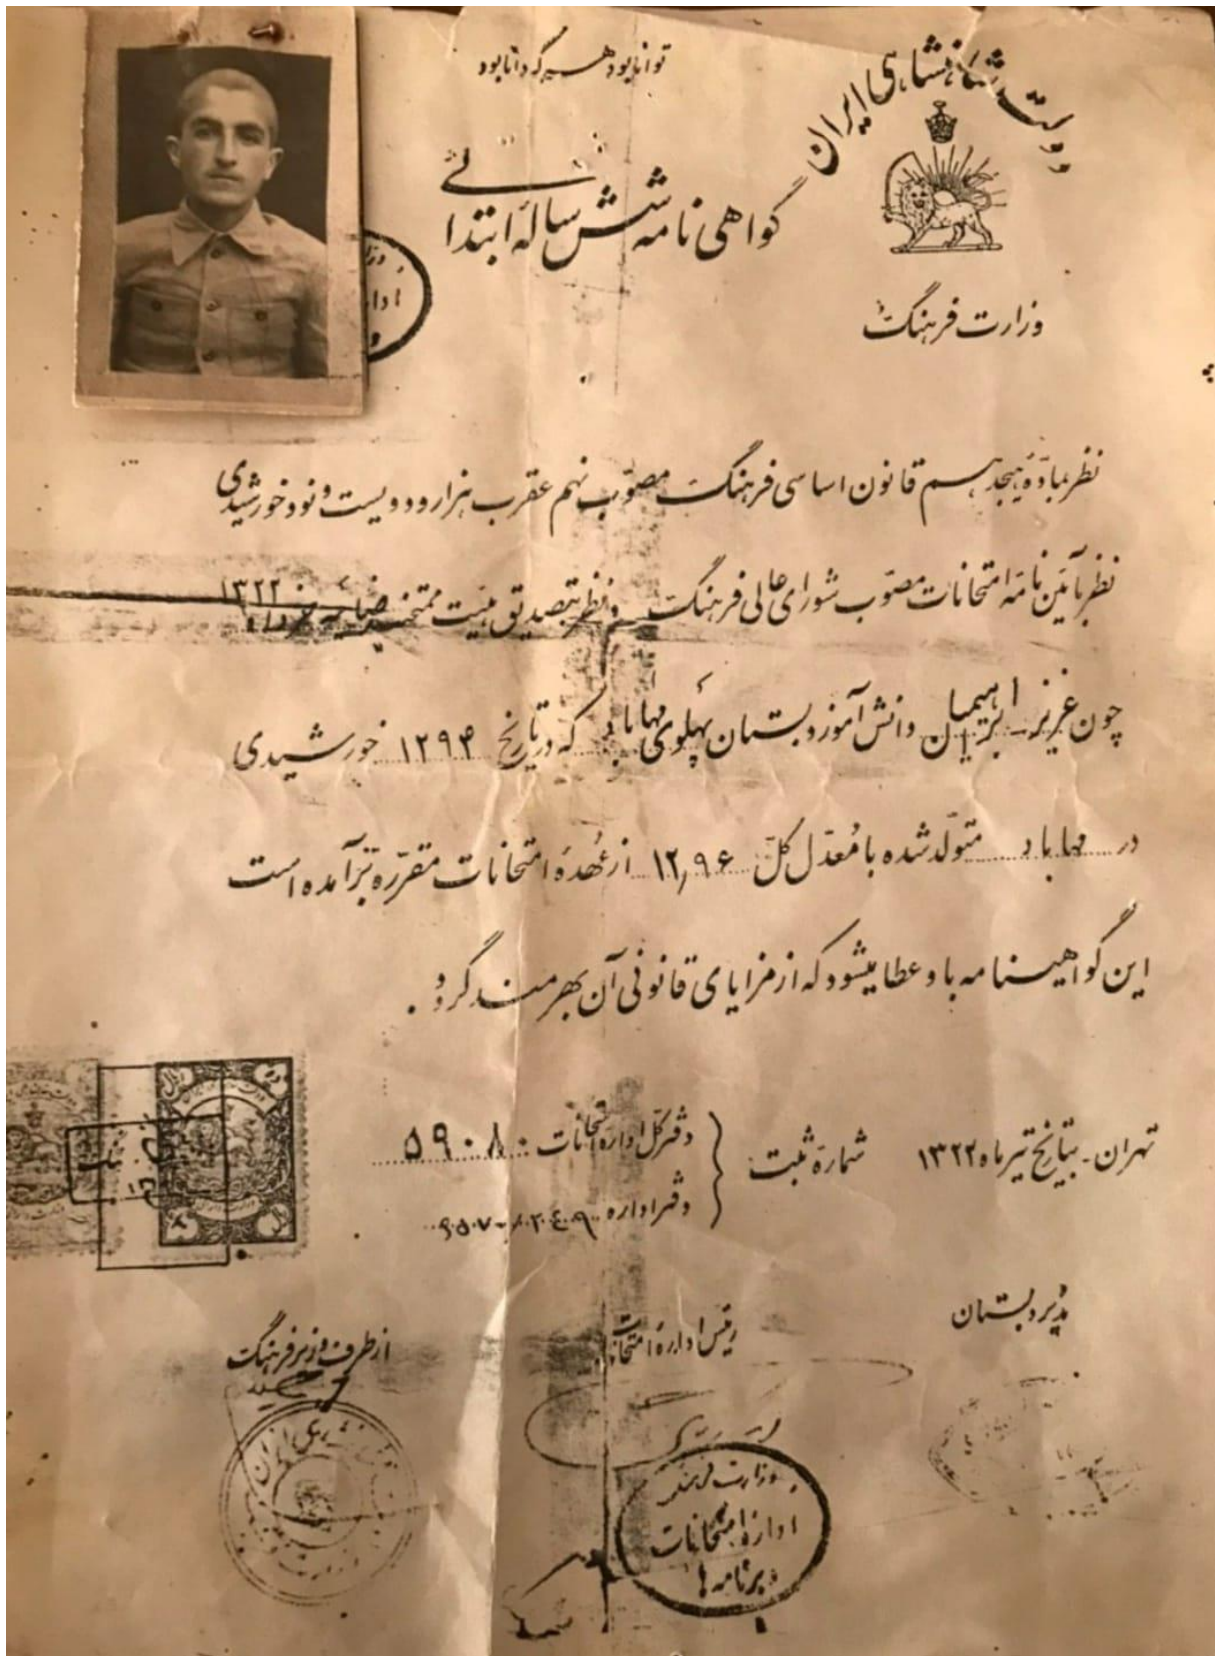 توانا بود هر که دانا بود
دولت شاهنشاهی ایران
گواهی نامه شش ساله ابتدائی
وزارت فرهنگ
نظر بمادّه هیجدهم قانون اساسی فرهنگ مصوّب نهم عقرب هزار و دویست و نود خورشیدی
نظر بآئین نامه امتحانات مصوّب شورای عالی فرهنگ و نظر بتصدیق هیئت ممتحنه رضائیه خرداد ۱۳۲۲
چون عزیز ابراهیمیان دانش آموز دبستان پهلوی مهاباد که در تاریخ ۱۲۹۴ خورشیدی
در مهاباد متولّد شده با مُعدّل کلّ ۱۲٫۹۶ از عُهدهٔ امتحانات مقرّره برآمده است
این گواهینامه باو عطا میشود که از مزایای قانونی آن بهرمند گردد.
تهران - بتاریخ تیر ماه ۱۳۲۲ شماره ثبت
دفتر کلّ اداره امتحانات ۵۹۰۸۰
دفتر اداره
مدیر دبستان
رئیس اداره امتحانات
از طرف وزیر فرهنگ
وزارت فرهنگ
اداره امتحانات
و برنامه ها